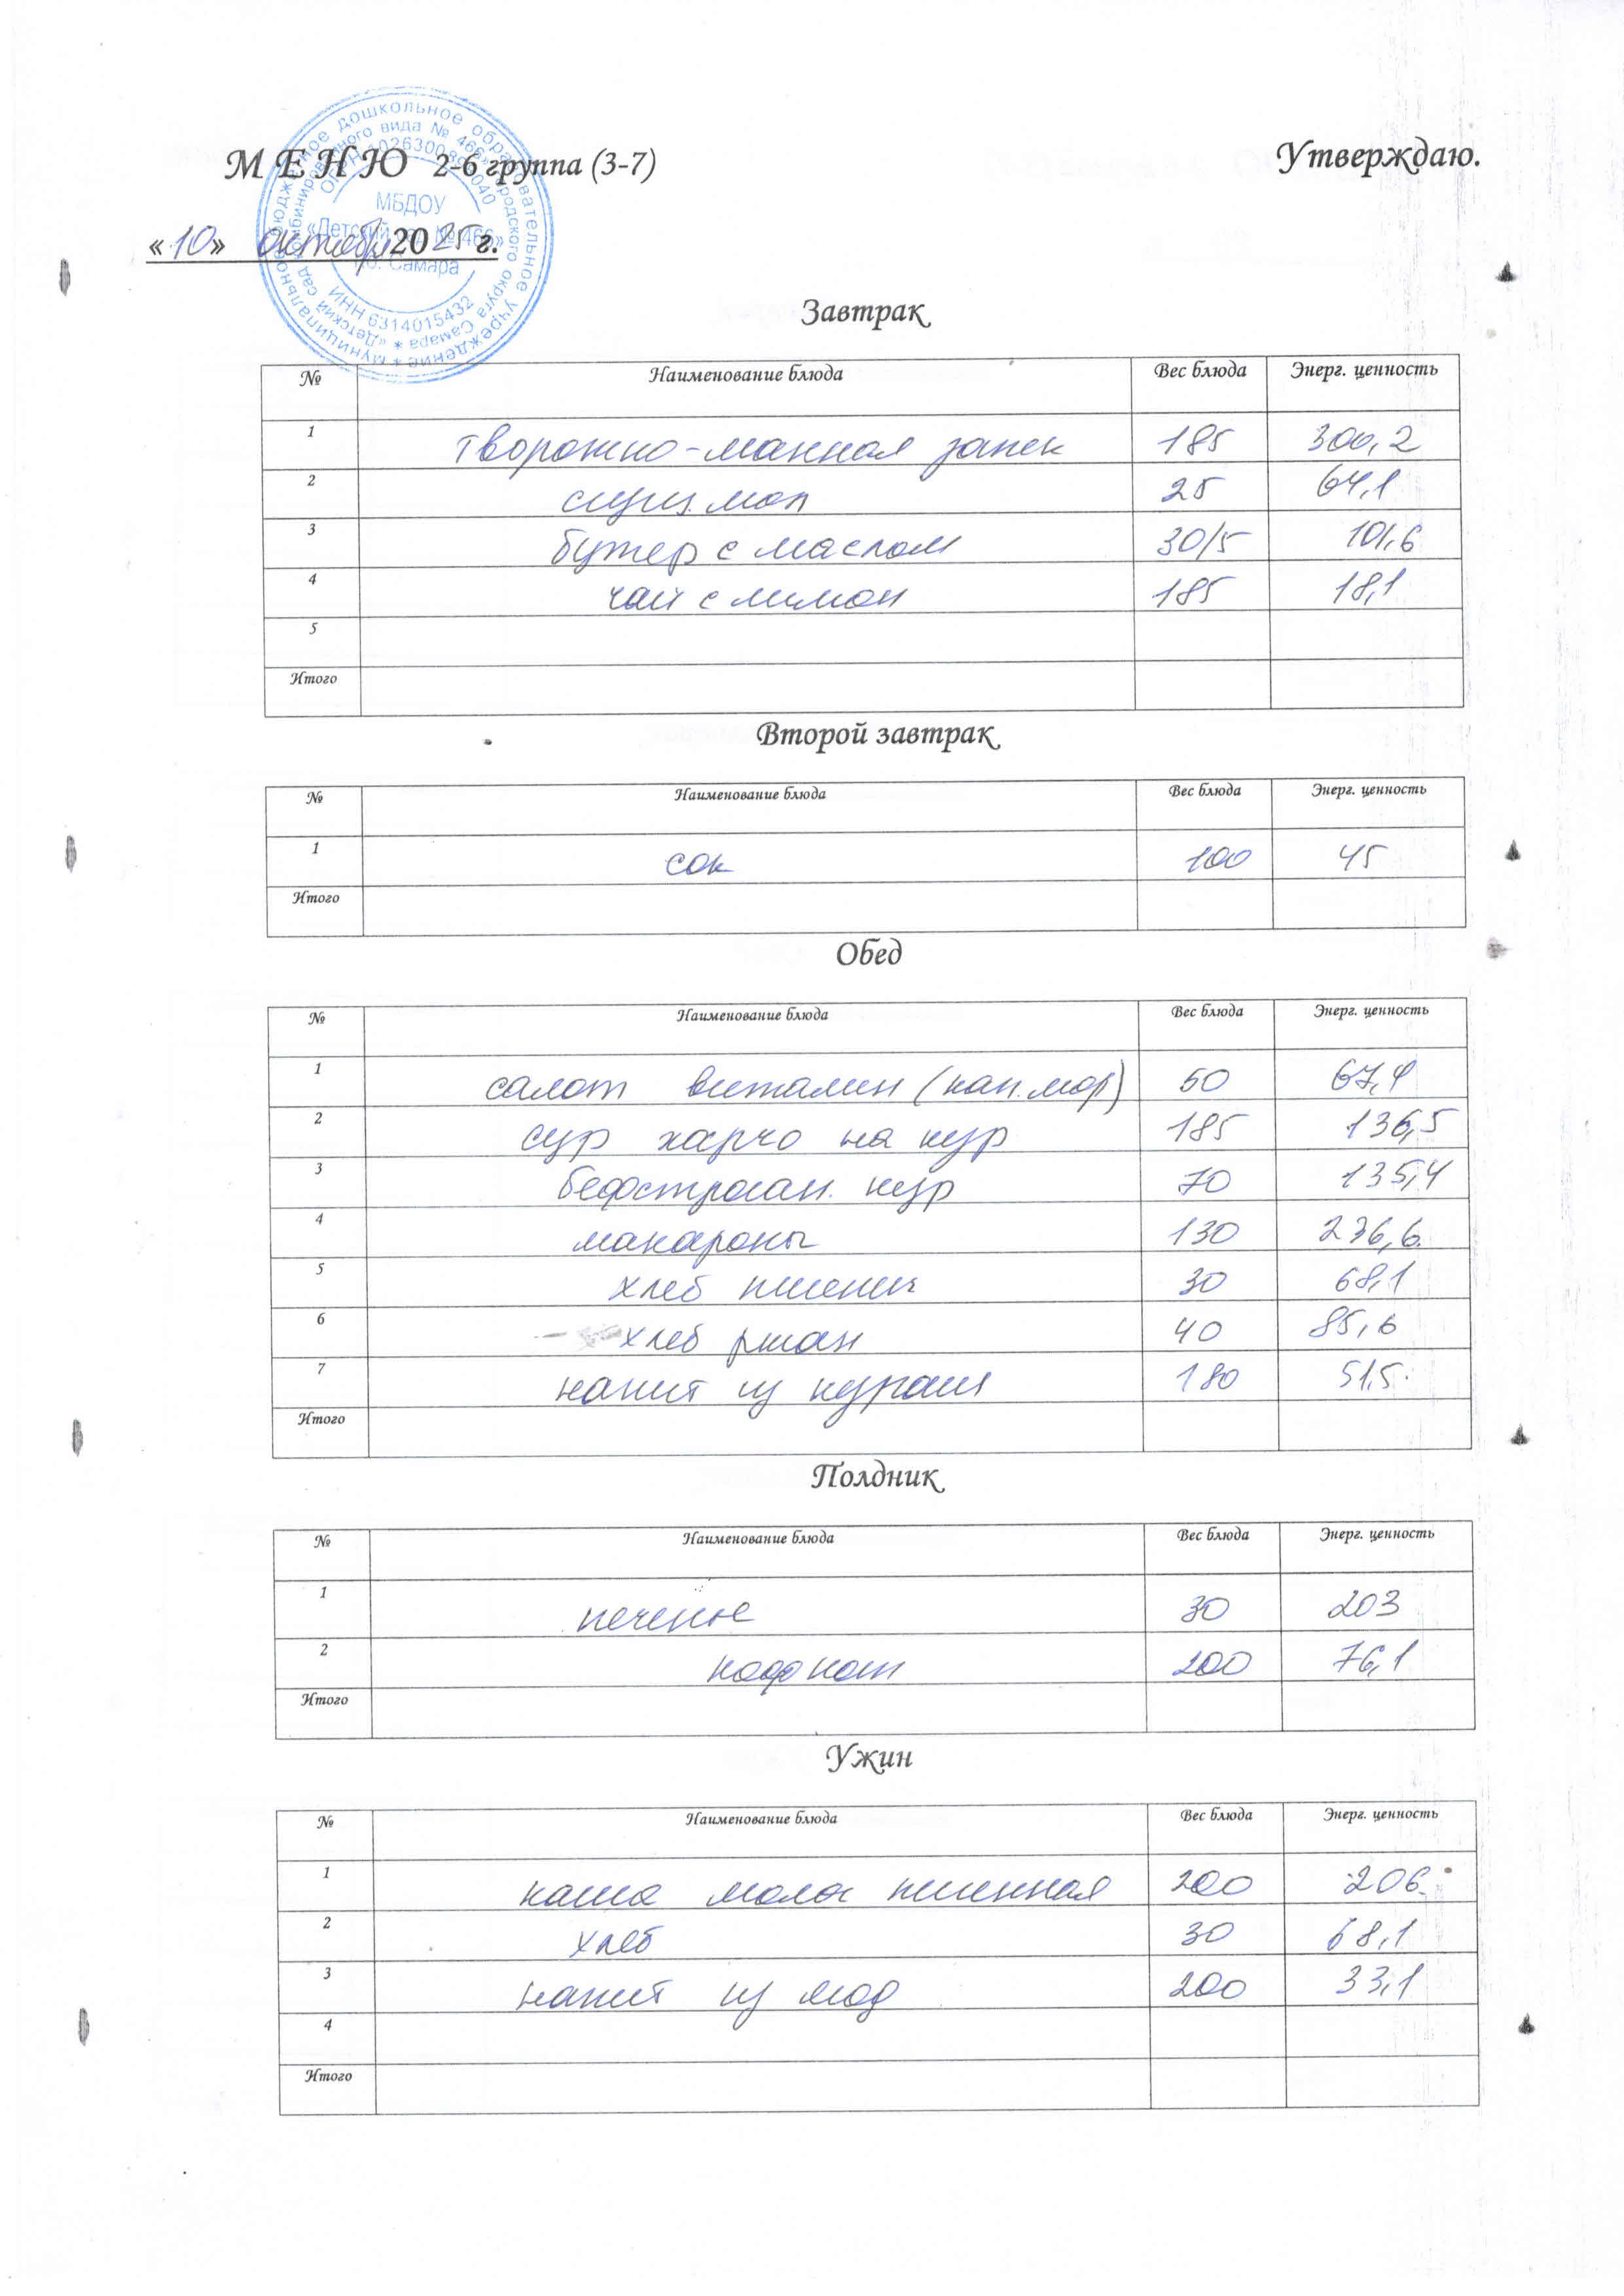 муниципальное бюджетное дошкольное образовательное учреждение
«Детский сад комбинированного вида № 466» городского округа Самара
МБДОУ
«Детский сад № 466»
г.о. Самара
ИНН 6314015432
М Е Н Ю 2-6 группа (3-7)
Утверждаю.
«10» октября 2025 г.
Завтрак
№ Наименование блюда Вес блюда Энерг. ценность
1 творожно-манная запек 185 300,2
2 сгущ. мол 25 64,1
3 бутер с маслом 30/5 101,6
4 чай с лимон 185 18,1
5
Итого
Второй завтрак
№ Наименование блюда Вес блюда Энерг. ценность
1 сок 100 45
Итого
Обед
№ Наименование блюда Вес блюда Энерг. ценность
1 салат витамин (кап. мор) 50 67,4
2 суп харчо на кур 185 136,5
3 бефстроган. кур 70 135,4
4 макароны 130 236,6
5 хлеб пшенич 30 68,1
6 хлеб ржан 40 85,6
7 напит из кураги 180 51,5
Итого
Полдник
№ Наименование блюда Вес блюда Энерг. ценность
1 печенье 30 203
2 коф нап 200 76,1
Итого
Ужин
№ Наименование блюда Вес блюда Энерг. ценность
1 каша молоч пшенная 200 206
2 хлеб 30 68,1
3 напит из 200 33,1
4
Итого